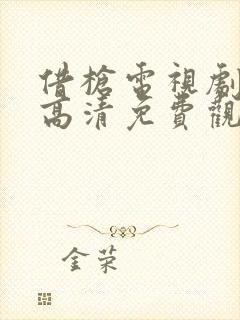 借槍電視劇
高清免費觀
金荣